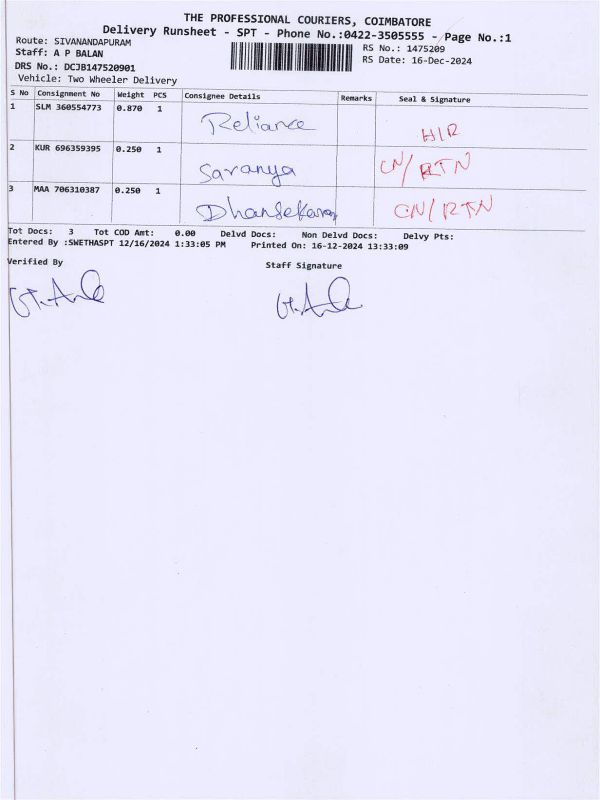 THE PROFESSIONAL COURIERS, COIMBATORE
Delivery Runsheet - SPT - Phone No.:0422-3505555 - Page No.:1
Route: SIVANANDAPURAM
RS No.: 1475209
Staff: A P BALAN
RS Date: 16-Dec-2024
DRS No.: DCJB147520901
Vehicle: Two Wheeler Delivery
S No Consignment No Weight PCS Consignee Details Remarks Seal & Signature
1 SLM 360554773 0.870 1 Reliance H/R
2 KUR 696359395 0.250 1 Saranya CN/RTN
3 MAA 706310387 0.250 1 Dhansekaran CN/RTN
Tot Docs: 3 Tot COD Amt: 0.00 Delvd Docs: Non Delvd Docs: Delvy Pts:
Entered By :SWETHASPT 12/16/2024 1:33:05 PM Printed On: 16-12-2024 13:33:09
Verified By Staff Signature